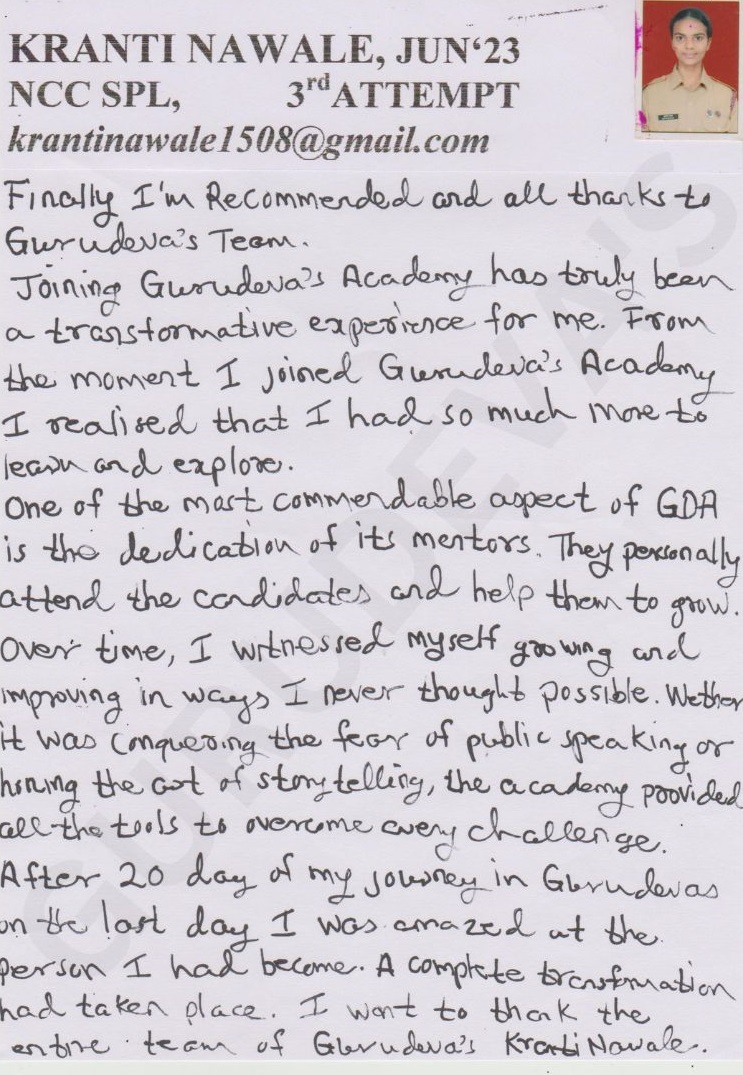 KRANTI NAWALE, JUN‘23
NCC SPL, 3rd ATTEMPT
krantinawale1508@gmail.com
Finally I'm Recommended and all thanks to
Gurudeva's Team.
Joining Gurudeva's Academy has truly been
a transformative experience for me. From
the moment I joined Gurudeva's Academy
I realised that I had so much more to
learn and explore.
One of the most commendable aspect of GDA
is the dedication of its mentors. They personally
attend the candidates and help them to grow.
Over time, I witnessed myself growing and
improving in ways I never thought possible. Wether
it was conquering the fear of public speaking or
honing the art of storytelling, the academy provided
all the tools to overcome every challenge.
After 20 day of my journey in Gurudevas
on the last day I was amazed at the
person I had become. A complete transfmation
had taken place. I want to thank the
entire team of Gurudeva's Kranti Nawale.
GURUDEVA'S